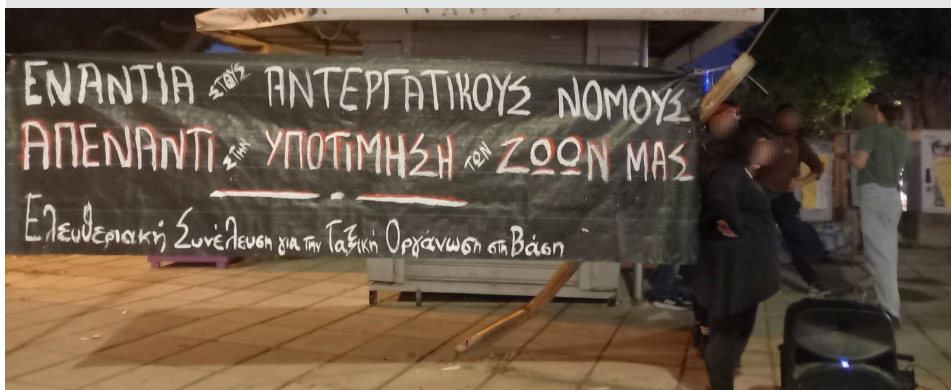 ΕΝΑΝΤΙΑ ΣΤΟΥΣ ΑΝΤΕΡΓΑΤΙΚΟΥΣ ΝΟΜΟΥΣ
ΑΠΕΝΑΝΤΙ ΣΤΗΝ ΥΠΟΤΙΜΗΣΗ ΤΩΝ ΖΩΩΝ ΜΑΣ
Ελευθεριακή Συνέλευση για την Ταξική Οργάνωση στη Βάση